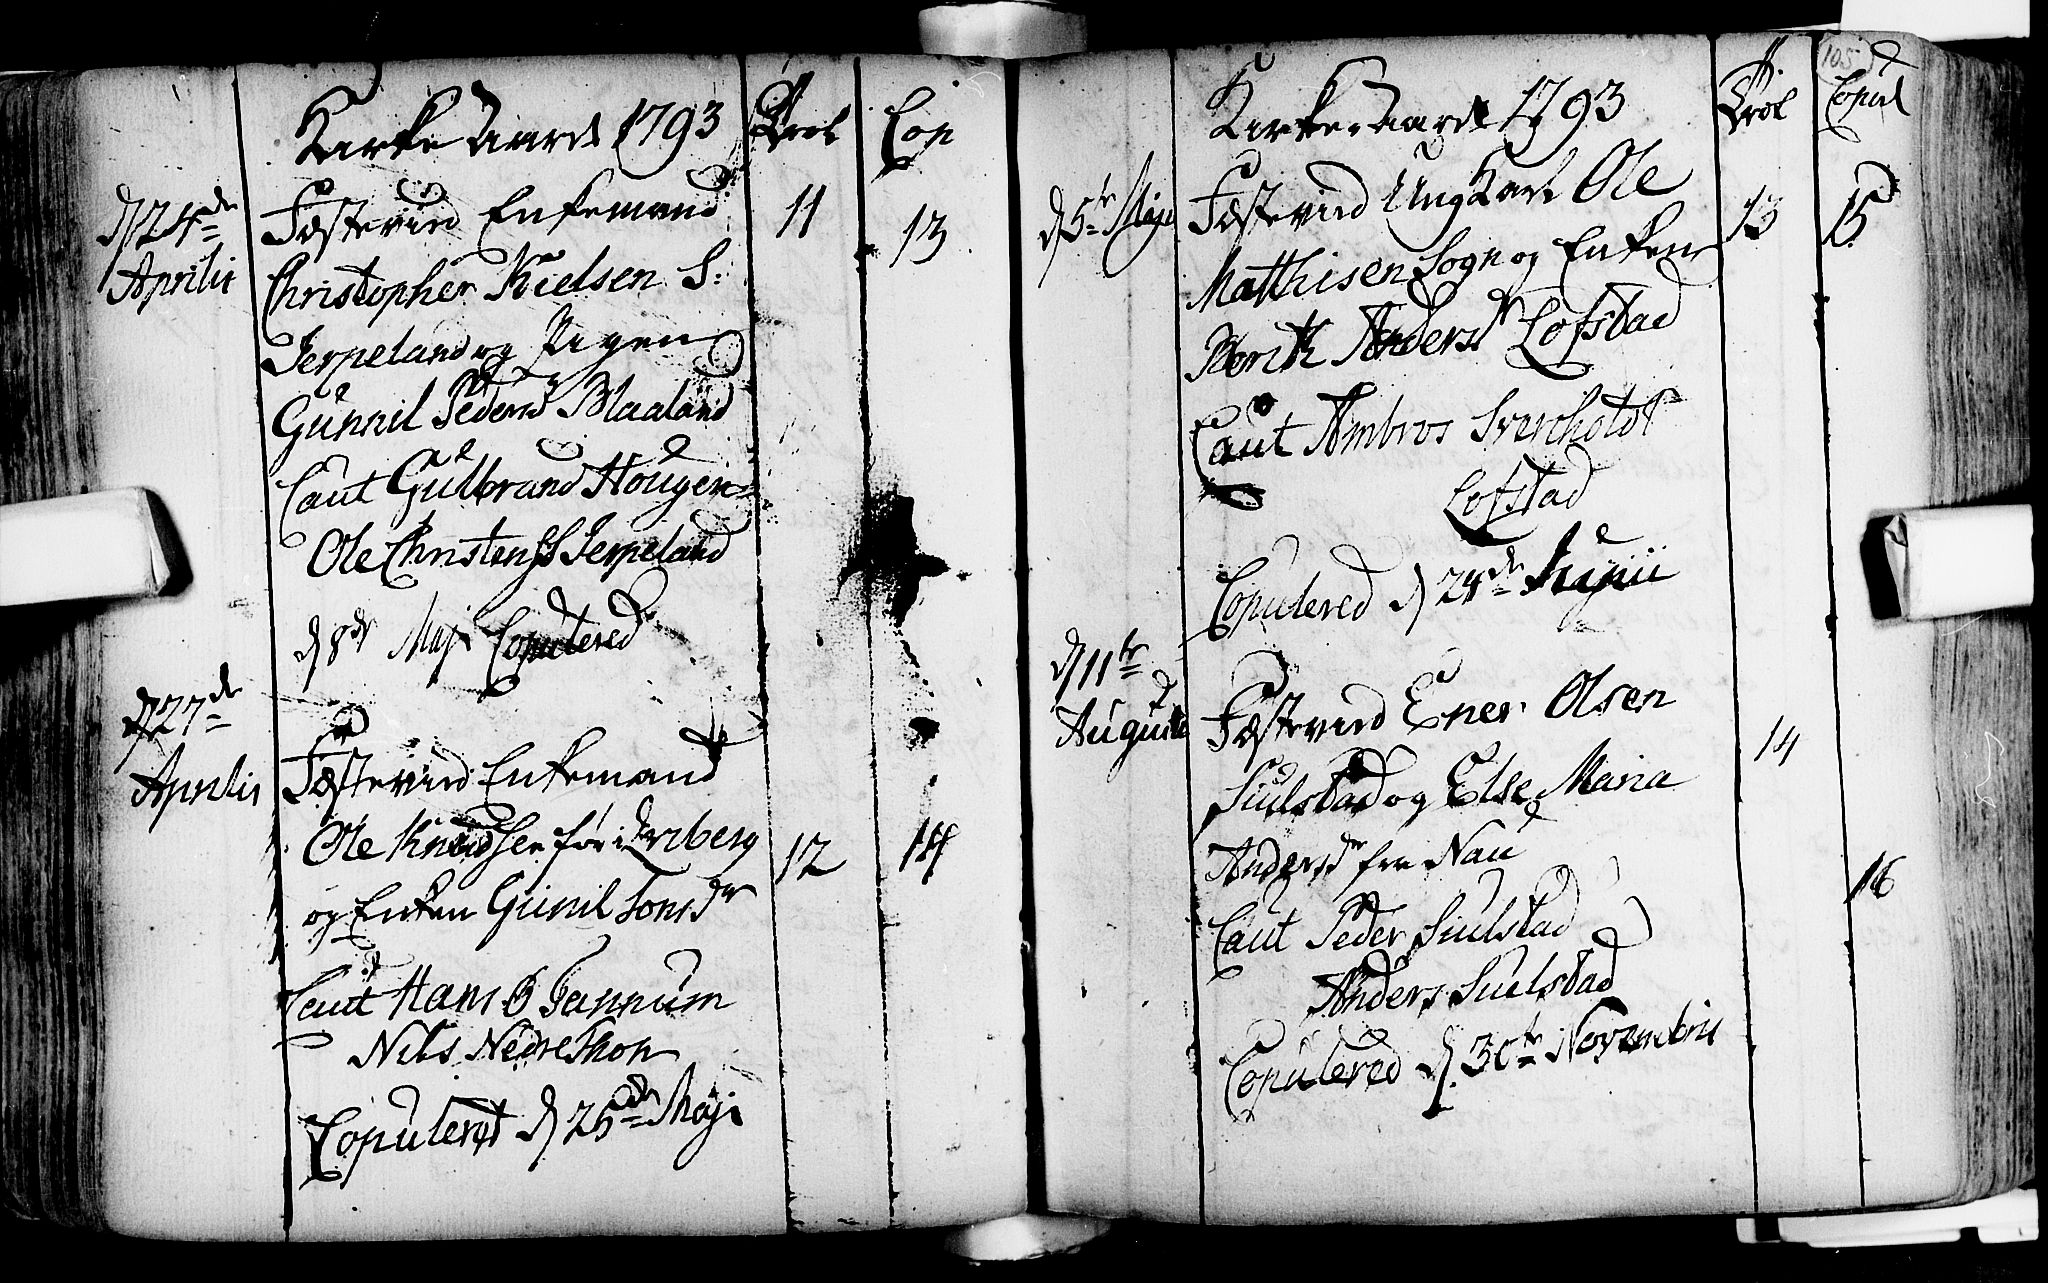 Kirke Aaret 1793
Trol
Cop
d 24de
Aprilis
Fæstevied Enkemand
11
13
Christopher Nielsen S:
Jerpeland og Pigen
Gunnil Peders D Blaaland
Caut Gulbrand Hougen
Ole Christens S Jerpeland
d 8de Maji Copulered
d 27de
Aprilis
Fæstevied Enkemand
Ole Knudsen
12
14
og Enken Gunil Tons Dr
Caut Hans G Tannum
Nils Nedre Thon
Copuleret d 25de Maji
105
Kirke Aaret 1793
Trol
Copul
d 5te Maji
Fæstevied Ung Karl Ole
13
15
Matthisen Sogn og Enken
Berith Anders Dr Lofstad
Caut Ambros Sverholdt
Lofstad
Copulered d 24de Junii
d 11te
Augusti
Fæstevied Ener Olsen
14
Siulstad og Else Maria
Anders Dr fra Nau
16
Caut Peder Siulstad
Anders Siulstad
Copulered d. 30te Novembris